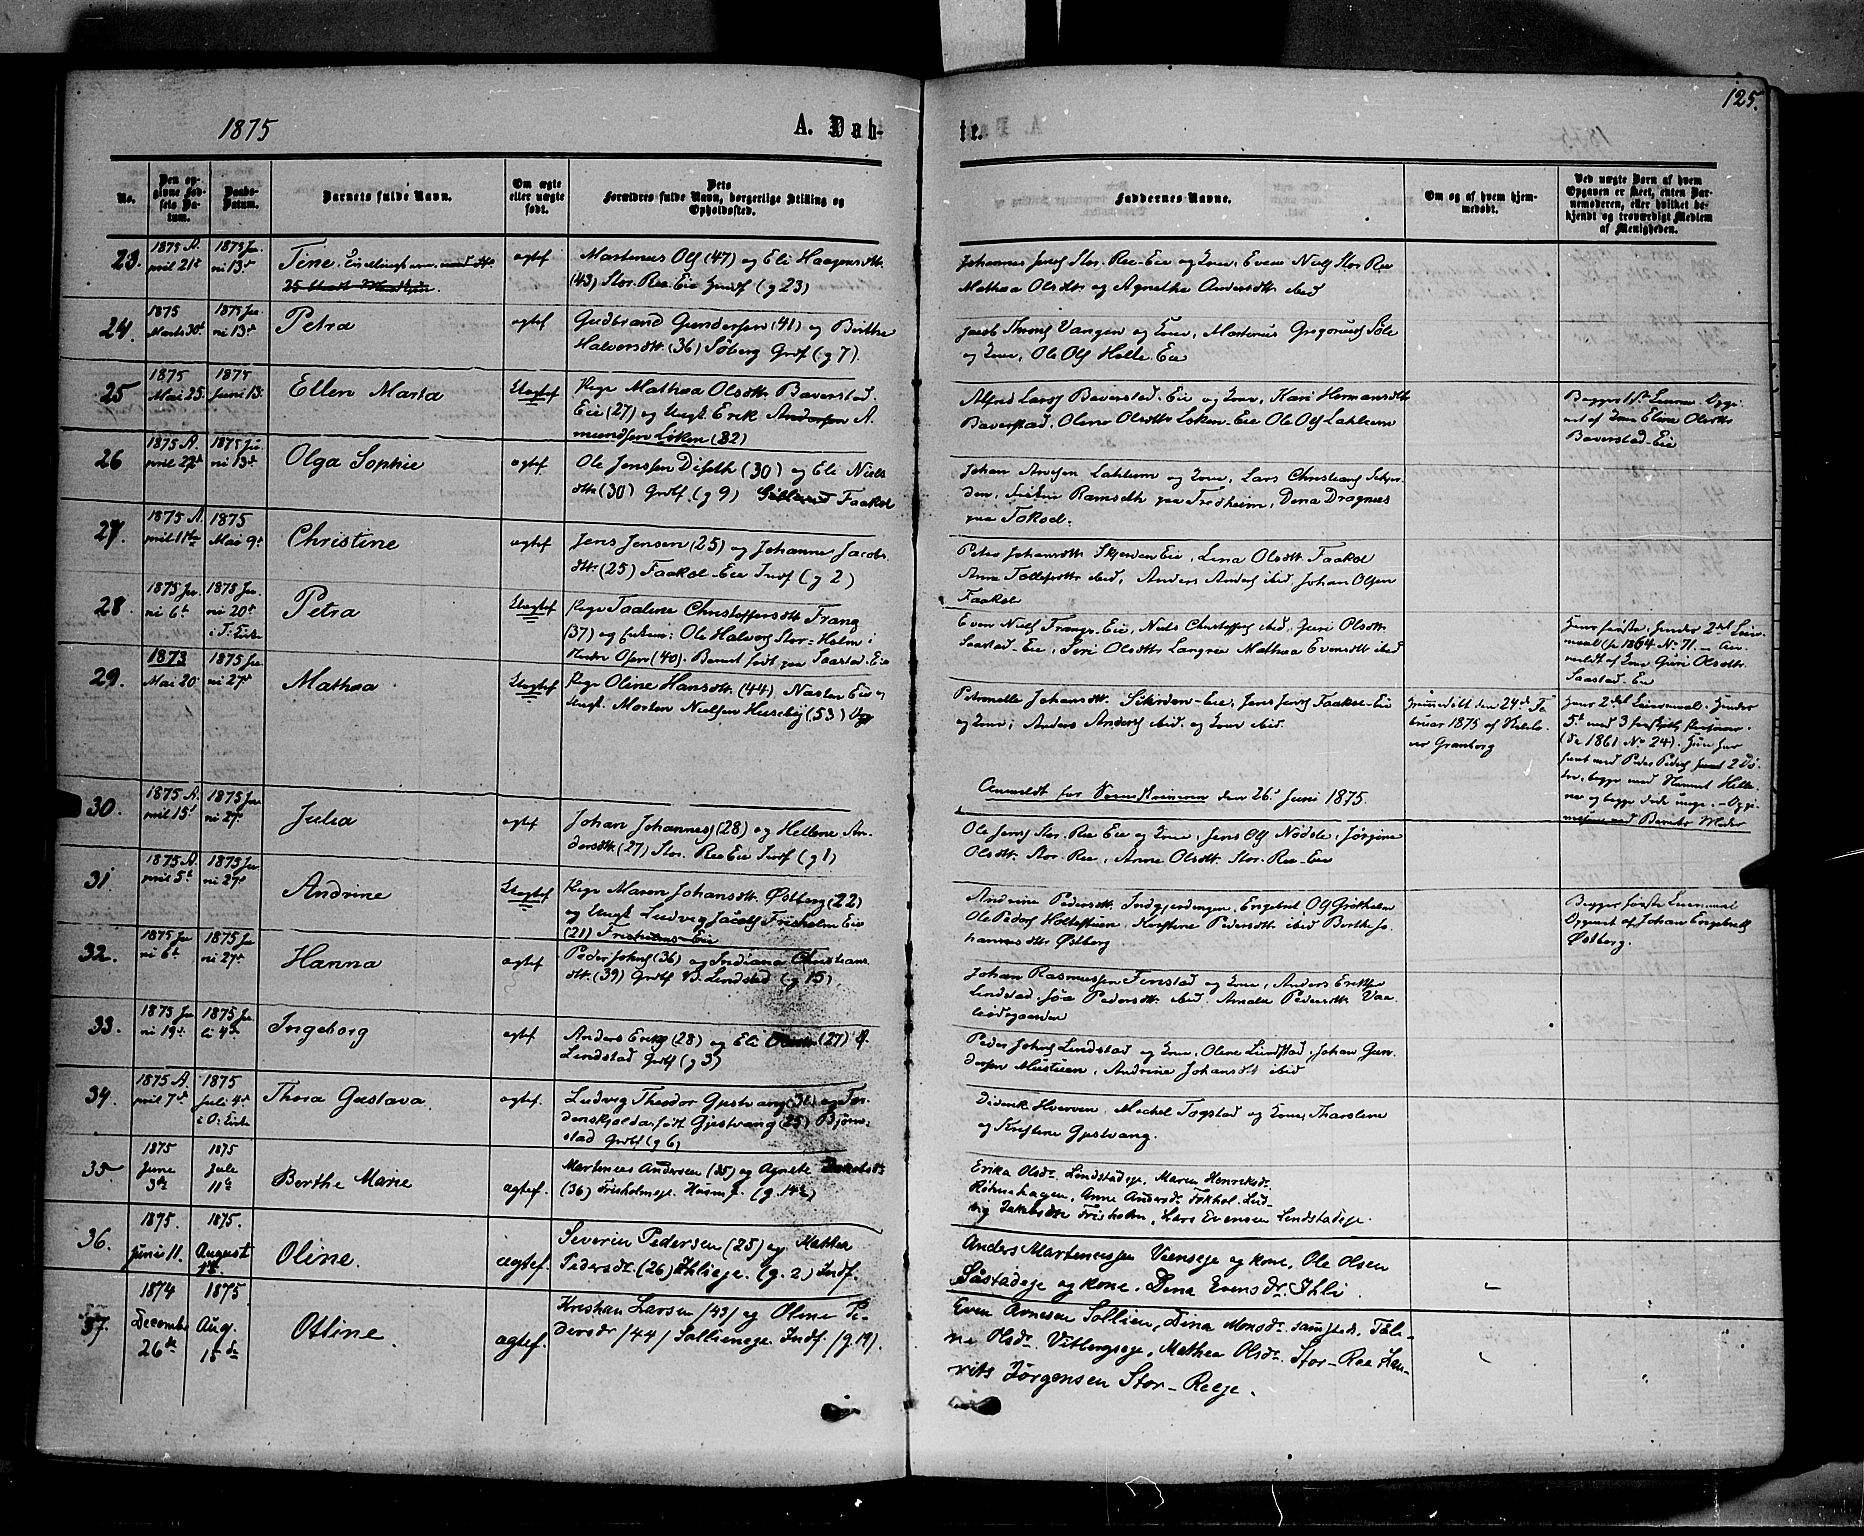 125.
1875
A. Døb-
te.
No.
Den opgivne Fødsels Datum.
Daabs-Datum.
Barnets fulde Navn.
Om ægte eller uægte født.
Dets Forældres fulde Navn, borgerlige Stilling og Opholdssted.
Faddernes Navne.
Om og af hvem hjemmedøbt.
Ved uægte Børn af hvem Opgaven er skeet, enten Barnemoderen, eller hvilket bekjendt og troværdigt Medlem af Menigheden.
23.
1875 A.
pril 21de
1875 Ju
ni 13de
Tine
ægtef
Martenus Ols (47) og Eli Haagensdtr
(43) Stor. Ree-Eie Indf (g 23)
Johannes Jens Stor. Ree-Eie og Kone, Even Niels Stor Ree
Mathea Olsdtr og Agnethe Andersdtr ibid
24.
1875
Marts 30t
1875 Ju
ni 13de
Petra
ægtef
Gudbrand Gundersen (41) og Berthe
Halvorsdtr (36) Søberg Grdf (g 7).
Jacob Thrones Vangen og Kone, Martenus Gregorius Søle
og Kone, Ole Ols Holte-Eie
25
1875
Mai 25.
1875
Juni 13.
Ellen Maria
Uægtef
Pige Mathea Olsdtr Baverstad
Eie (27) og Ungk. Erik A
mundsen Løken (32)
Alfred Lars Baverstad. Eie og Kone, Kari Hermansdtr
Baverstad, Oline Olsdtr Løken-Eie Ole Ols Lahlum
Begges 1ste Leierm. Opgi
vet af Kone Elene Olsdtr
Baverstad-Eie
26
1875 A.
pril 22de
1875 Ju
ni 13de
Olga Sophie
ægtef
Ole Jenssen Diseth (30) og Eli Niels
dtr (30) Grdf (g 9) Faakol
Johan Arnesen Lahlum og Kone, Lars Christians Skjer
den, Ramseth paa Fredheim, Dena Dragnes
paa Fokol.
27.
1875 A.
pril 11te
1875
Mai 9de
Christine
ægtef
Jens Jensen (25) og Johanne Jacobs
dtr (25) Faakol-Eie Indf (g 2)
Petra Johansdtr Skjerden Eie, Lina Olsdtr Faakol
Anne Tollefsdtr ibid, Anders Anders ibid Johan Olsen
Faakol
28
1875 Ju
ni 6te
1875 Ju
ni 20de
i T. Kirke
Petra
Uægtef
Pige Taaline Christoffersdtr Frang
(37) og Enkem: Ole Halvors Stor-Holm i
Nedre Osen (40). Barnet født paa Saastad-Eie
Even Niels Frangs-Eie, Niels Christoffers ibid, Guri Olsdtr
Saastad-Eie, Siri Olsdtr Langree Mathea Evensdtr ibid
Hans første, hendes 2det Leier
maal (se 1864 No 71. - An
meldt af Kone Guri Olsdtr
Saastad. Eie
29.
1873
Mai 20
1875 Ju
ni 27de
Mathea
Uægtef
Pige Oline Hansdtr (44) Naslen Eie og
Ungk. Morten Nielsen Huseby (53)
Petronelle Johansdtr. Skjerden-Eie, Jens Jens Faakol-Eie
og Kone, Anders Anders ibid. og Kone ibid.
Hjemmedøbt den 24de Fe
bruar 1875 af
Granborg
Hans 2det Leiermaal. Hendes
5te med 3 forskjellige
(se 1861 No 24). Hun har
havt med Peder Peders 2 Dø
tre, begge
og begge døde unge. - Opgi
velsen ved Barnets Moder
Anmeldt for den 26de Juni 1875.
30.
1875 A.
pril 15de
1875 Ju
ni 27de
Julia
ægtef
Johan Johannes (28) og Hellene An
dersdtr (27) Stor. Ree Eie Indf (g 1)
Ole Jens Stor. Ree Eie og Kone, Jens Ols Nødsle, Jørgine
Olsdtr. Stor-Ree, Anne Olsdtr. Stor. Ree-Eie
31
1875 A.
pril 5te
1875 Ju
ni 27de
Andrine
Uægtef
Pige Maren Johansdtr Østberg (22)
og Ungk. Ludvig Jacobs Frisholm Eie
(21) Frisholms-Eie
Andrine Pedersdtr Indgjerdingen, Engebret Ols Grøtholm
Ole Peders Holtestuen, Kristine Pedersdtr ibid Berthe Jo
hannesdtr Østberg
Begges første Leiermaal
Opgivet af Johan Engebrets
Østberg.
32.
1875 Ju
ni 6te
1875 Ju
ni 27de
Hanna
ægtef
Peder Johns (36) og Indiana Christians
dtr (39) Grdf N. Lindstad (g 15)
Johan Rasmussen Finstad og Kone, Anders Eriks
Lindstad Pedersdtr ibid. Amalie Pedersdtr Vaa
33.
1875 Ju
ni 19de
1875 Ju
li 4de
Ingeborg
ægtef
Anders Eriks (28) og Eli (27)
Lindstad Grdf (g 3)
Peder Johns Lindstad og Kone, Oline Lundstad, Johan Gun
dersen Mustuen, Andrine Johansdtr ibid
34.
1875 A.
pril 7de
1875
Juli 4de
i O. Kirke
Thora Gustava.
ægtef.
Ludvig Theodor Gjestvang (31) og Tor
denskjolda født Gjestvang (25) Bjørn
stad Grdf (g 6)
Diderik Hverven, Mechel Togstad og Kone, Tharslene
og Kristine Gjestvang.
35
1875
June
3de
1875
Jule
11te
Berthe Marie
ægtef.
Martenees Andersen (35) og Agnete Jakobsdr
(36) Frisholmeje. Husm. f. (g. 14½)
Erika Olsdr. Lindstadeje, Maren Henriksdr
Røhnshagen, Anne Andersdr Fokhol. Lud
vig Jakobsen Frisholm, Lars Evensen Lindstadeje.
36.
1875.
juni 11.
1875.
August
1ste
Oline.
ægtef.
Severin Pedersen (25) og Mathea
Pedersdr. (26) Ihlieje. (g. 2) Indf.
Anders Martenussen Veenseje og kone, Ole Olsen
Såstadeje og kone. Dina Evensdr. Ihli.
37.
1874
Decembr
26de
1875
Aug.
15de
Otline.
ægtef.
Kristian Larsen /43/ og Oline Pe-
dersdr /44/ Sollieneje. Indf. /g. 19/.
Even Arnesen Sollien, Dina Monsdr. samsteds, Tali-
ne Olsdr. Vitbergseje, Mathea Olsdr. Stor-Ree Lau-
rits Jørgensen Stor-Reeje.